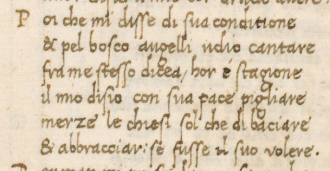 Poi che mi disse di sua conditione
& pel bosco augelli udio cantare
fra me stesso dicea, hor é stagione
il mio disio con sua pace pigliare
merze le chiesi sol che di baciare
& abbracciar: se fusse il suo volere.